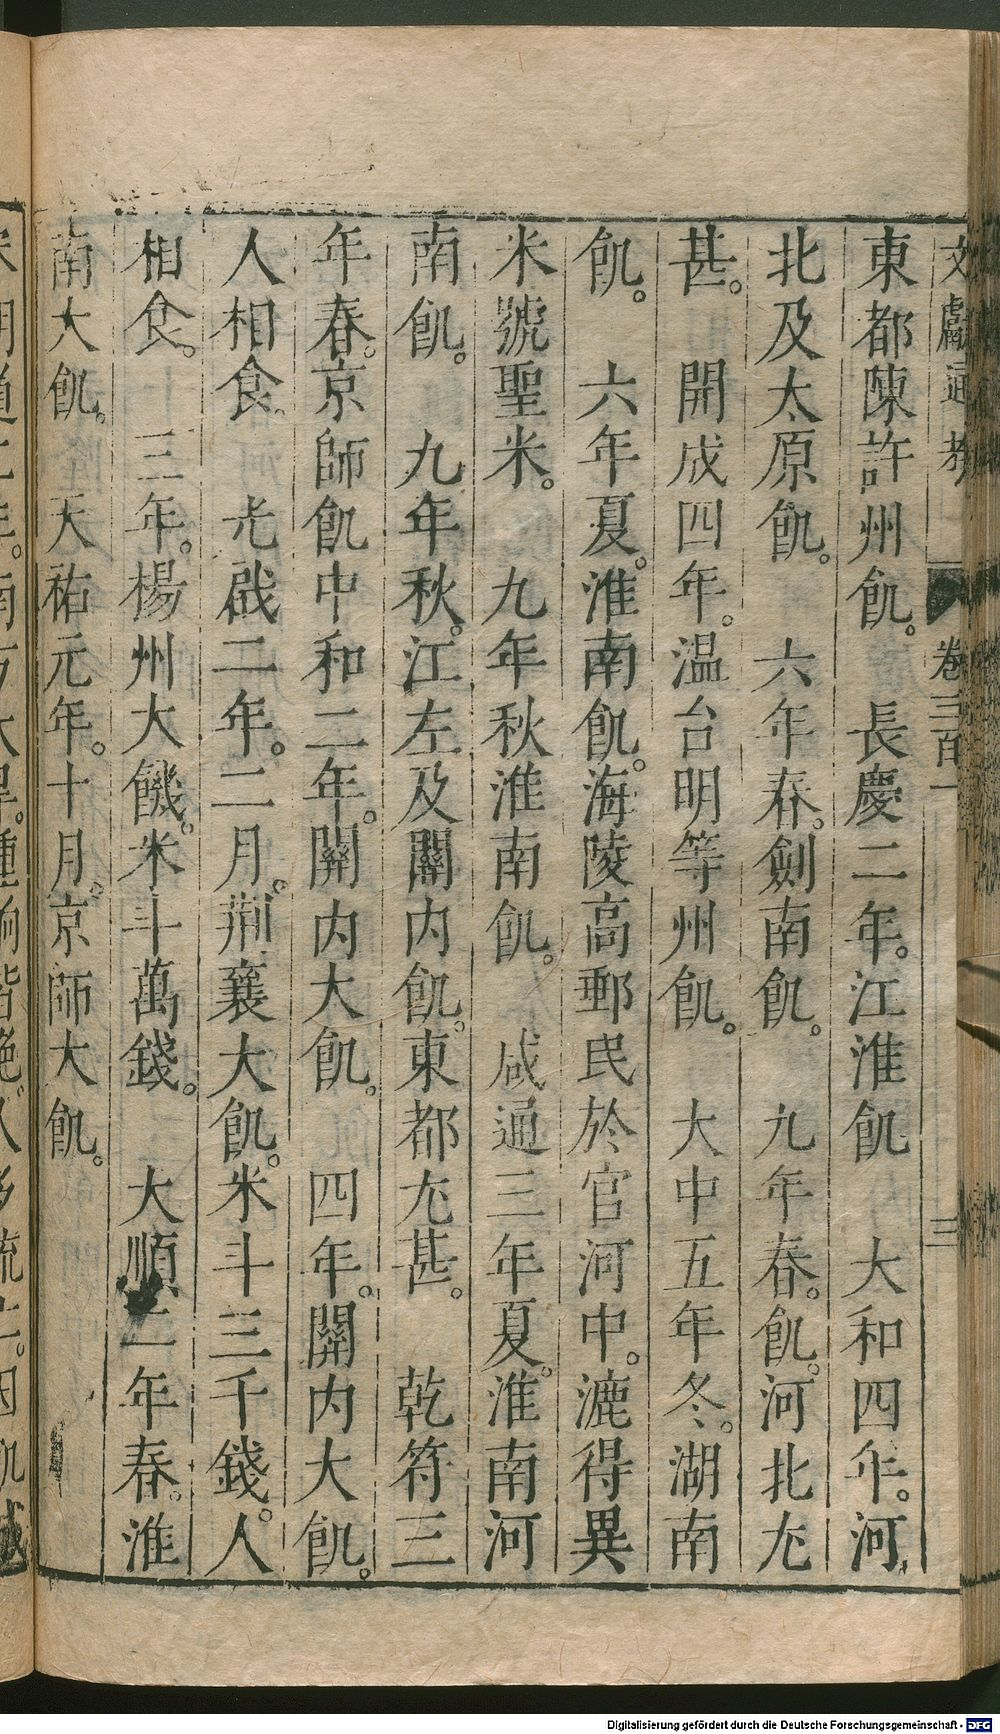 文獻通考 卷三百一 三
東都陳許州飢。 長慶二年。江淮飢 大和四年。河
北及太原飢。 六年春。劍南飢。 九年春。飢。河北尤
甚。 開成四年。温台明等州飢。 大中五年冬。湖南
飢。 六年夏。淮南飢。海陵高郵民於官河中。漉得異
米號聖米。 九年秋淮南飢。 咸通三年夏。淮南河
南飢。 九年秋。江左及關内飢。東都尤甚。 乾符三
年春。京師飢中和二年。關内大飢。 四年。關内大飢。
人相食。 光啟二年。二月。荆襄大飢。米斗三千錢。人
相食。 三年。楊州大饑。米斗萬錢。 大順二年春。淮
南大飢。 天祐元年。十月。京師大飢。
Digitalisierung gefördert durch die Deutsche Forschungsgemeinschaft - DFG